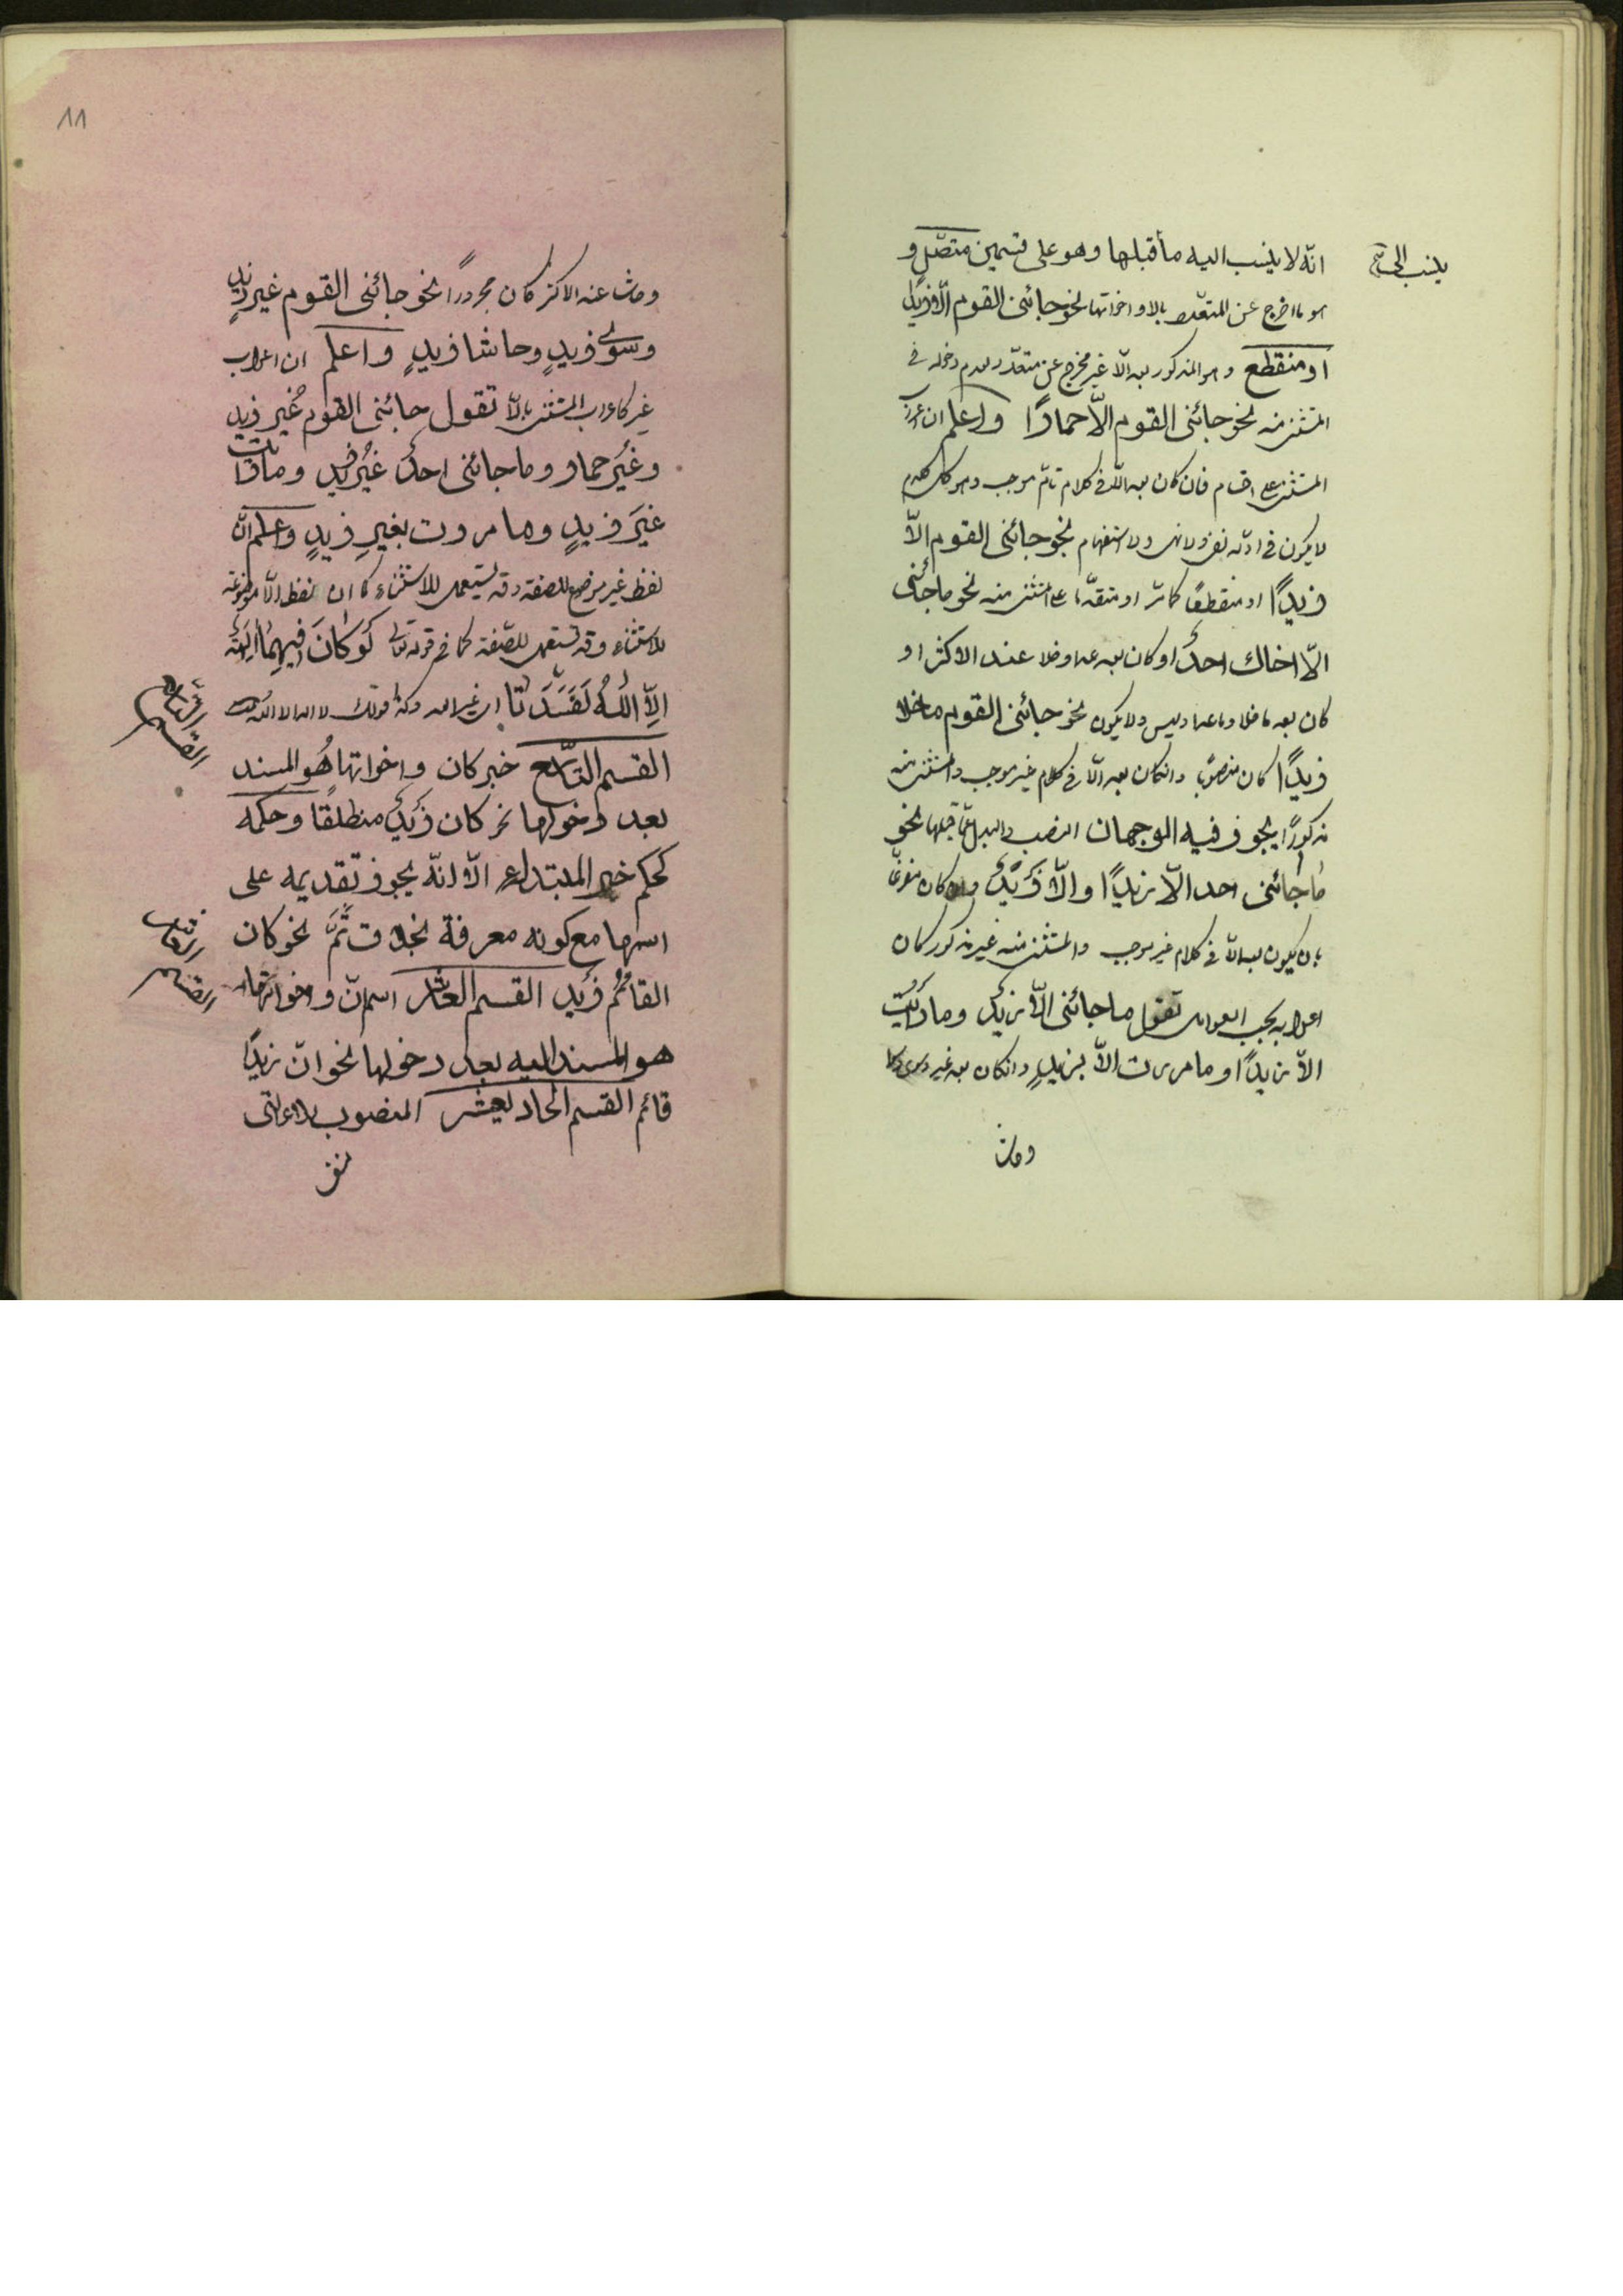 انّه لا ينسب اليه ما قبلها وهو على قسمين متصّل و
هو ما اخرج عن المتعدد بالا و اخواتها نحو جائنى القوم الّا زيدًا
او منقطع و هو المذكور بعد الّا غير مخرج عن متعدّد لعدم دخوله فى
المستثنى منه نحو جائنى القوم الّا حمارًا واعلم ان اعراب
المستثنى على اقسام فان كان بعد الّا فى كلام تامّ موجب و هو كل كلام
لا يكون فى اوّله نفى ولا نهى ولا استفهام نحو جائنى القوم الّا
زيدًا او منقطعًا كما مرّ او متقدّما على المستثنى منه نحو ما جائنى
الّا اخاك احدٌ او كان بعد عدا وخلا عند الاكثر او
كان بعد ما خلا وما عدا وليس ولا يكون نحو جائنى القوم ما خلا
زيدًا كان منصوبًا وان كان بعد الّا فى كلام غير موجب والمستثنى منه
مذكورًا يجوز فيه الوجهان النصب والبدل عمّا قبلها نحو
ما جائنى احد الّا زيدًا والّا زيدٌ وان كان مفرغًا
بان يكون بعد الّا فى كلام غير موجب والمستثنى منه غير مذكور كان
اعرابه بحسب العوامل تقول ما جائنى الّا زيدٌ وما رايت
الّا زيدًا وما مررت الّا بزيدٍ وان كان بعد غير وسوى
وحاشا
ينسب الى
وحاشا عند الاكثر كان مجرورًا نحو جائنى القوم غير زيدٍ
وسوى زيدٍ وحاشا زيدٍ واعلم ان اعراب
غير كاعراب المستثنى بالّا تقول جائنى القوم غير زيد
وغير حمار وما جائنى احدٌ غيرُ زيد وما رايت
غيرَ زيدٍ وما مررت بغيرِ زيدٍ واعلم انّ
لفظ غير موضوع للصفة وقد يستعمل للاستثناء كما ان لفظ الّا موضوعة
للاستثناء وقد تستعمل للصّفة كما فى قوله تعالى لَوْ كَانَ فِيهِمَا اٰلِهَةٌ
اِلَّا اللّٰهُ لَفَسَدَتَا اى غير الله وكذا قولك لا اله الا الله
القسم التاسع خبر كان واخواتها هُو المسند
بعد دخولها نحو كان زيدٌ منطلقًا وحكمه
كحكم خبر المبتداء الّا انّه يجوز تقديمه على
اسمها مع كونه معرفة بخلاف ثَمَّ نحو كان
القائمُ زيد القسم العاشر اسم انّ واخواتها
هو المسند اليه بعد دخولها نحو انّ زيدًا
قائم القسم الحادى عشر المنصوب بلا التى
لنفى
القسم التاسع
القسم العاشر
١١